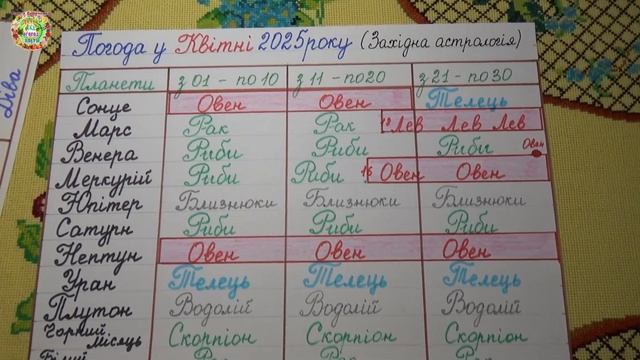 Діва
Погода у Квітні 2025року (Західна астрологія)
Планети з 01 - по 10 з 11 - по20 з 21 - по 30
Сонце Овен Овен Телець
Марс Рак Рак 18 Лев Лев Лев
Венера Риби Риби Риби Овен
Меркурій Риби Риби 16 Овен Овен
Юпітер Близнюки Близнюки Близнюки
Сатурн Риби Риби Риби
Нептун Овен Овен Овен
Уран Телець Телець Телець
Плутон Водолій Водолій Водолій
Чорний Місяць Скорпіон Скорпіон Скорпіон
Білий Рак Рак